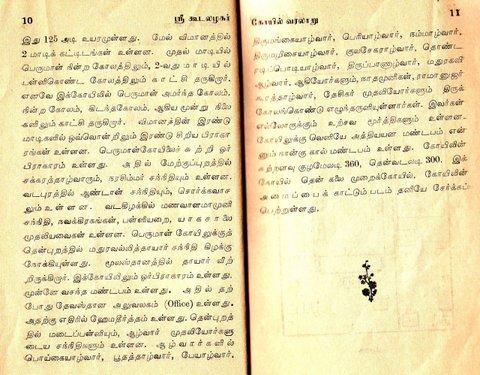 10 ஸ்ரீ கூடலழகர்
இது 125 அடி உயரமுள்ளது. மேல் விமானத்தில்
2 மாடிக் கட்டிடங்கள் உள்ளன. முதல் மாடியில்
பெருமாள் நின்ற கோலத்திலும், 2-வது மாடியில்
பள்ளிகொண்ட கோலத்திலும் காட்சி தருகிறார்.
எனவே இக்கோயிலில் பெருமாள் அமர்ந்த கோலம்,
நின்ற கோலம், கிடந்தகோலம், ஆகிய மூன்று நிலை
களிலும் காட்சி தருகிறார். விமானத்தின் இரண்டு
மாடிகளில் ஒவ்வொன்றிலும் இரண்டு சிறிய பிராகா
ரங்கள் உள்ளன. பெருமாள்கோயிலைச் சுற்றி ஓர்
பிராகாரம் உள்ளது. அதில் மேற்குப்புறத்தில்
சக்கரத்தாழ்வாரும், நரசிம்மர் சந்நிதியும் உள்ளன.
வடபுறத்தில் ஆண்டாள் சந்நிதியும், சொர்க்கவாச
லும் உள்ளன. வடகிழக்கில் மணவாளமாமுனி
சந்நிதி, நவக்கிரகங்கள், பள்ளியறை, யாகசாலை
முதலியவைகள் உள்ளன. பெருமாள் கோயிலுக்குத்
தென்புறத்தில் மதுரவல்லித்தாயார் சந்நிதி கிழக்கு
நோக்கியுள்ளது. மூலஸ்தானத்தில் தாயார் வீற்
றிருக்கிறார். இக்கோயிலிலும் ஓர்பிராகாரம் உள்ளது.
முன்னே வசந்த மண்டபம் உள்ளது. அதில் தற்
போது தேவஸ்தான அலுவலகம் (Office) உள்ளது.
அதற்கு எதிரில் ஹேமதீர்த்தம் உள்ளது. தென்புறத்
தில் மடைப்பள்ளியும், ஆழ்வார் முதலியோர்களு
டைய சந்நிதிகளும் உள்ளன. ஆழ்வார்களில்
பொய்கையாழ்வார், பூதத்தாழ்வார், பேயாழ்வார்,
கோயில் வரலாறு 11
திருமங்கையாழ்வார், பெரியாழ்வார், நம்மாழ்வார்,
திருமழிசையாழ்வார், குலசேகராழ்வார், தொண்ட
ரடிப்பொடியாழ்வார், திருப்பாணாழ்வார், மதுரகவி
ஆழ்வார், ஆகியோர்களும், நாதமுனிகள், ராமானுஜர்
கூரத்தாழ்வார், தேசிகர் முதலியோர்களும் திருக்
கோலங்கொண்டு எழுந்தருளியுள்ளார்கள். இவர்கள்
எல்லோருக்கும் உற்சவ மூர்த்திகளும் உள்ளன.
கோயிலுக்கு வெளியே அத்தியயன மண்டபம் என்
னும் நான்கு கால் மண்டபம் உள்ளது. கோயிலின்
சுற்றளவு குழமேலடி 360, தென்வடலடி 300. இக்
கோயில் தென் கலை முறைக்கோயில், கோயிலின்
அமைப்பைக் காட்டும் படம் தனியே சேர்க்கப்
பெற்றுள்ளது.